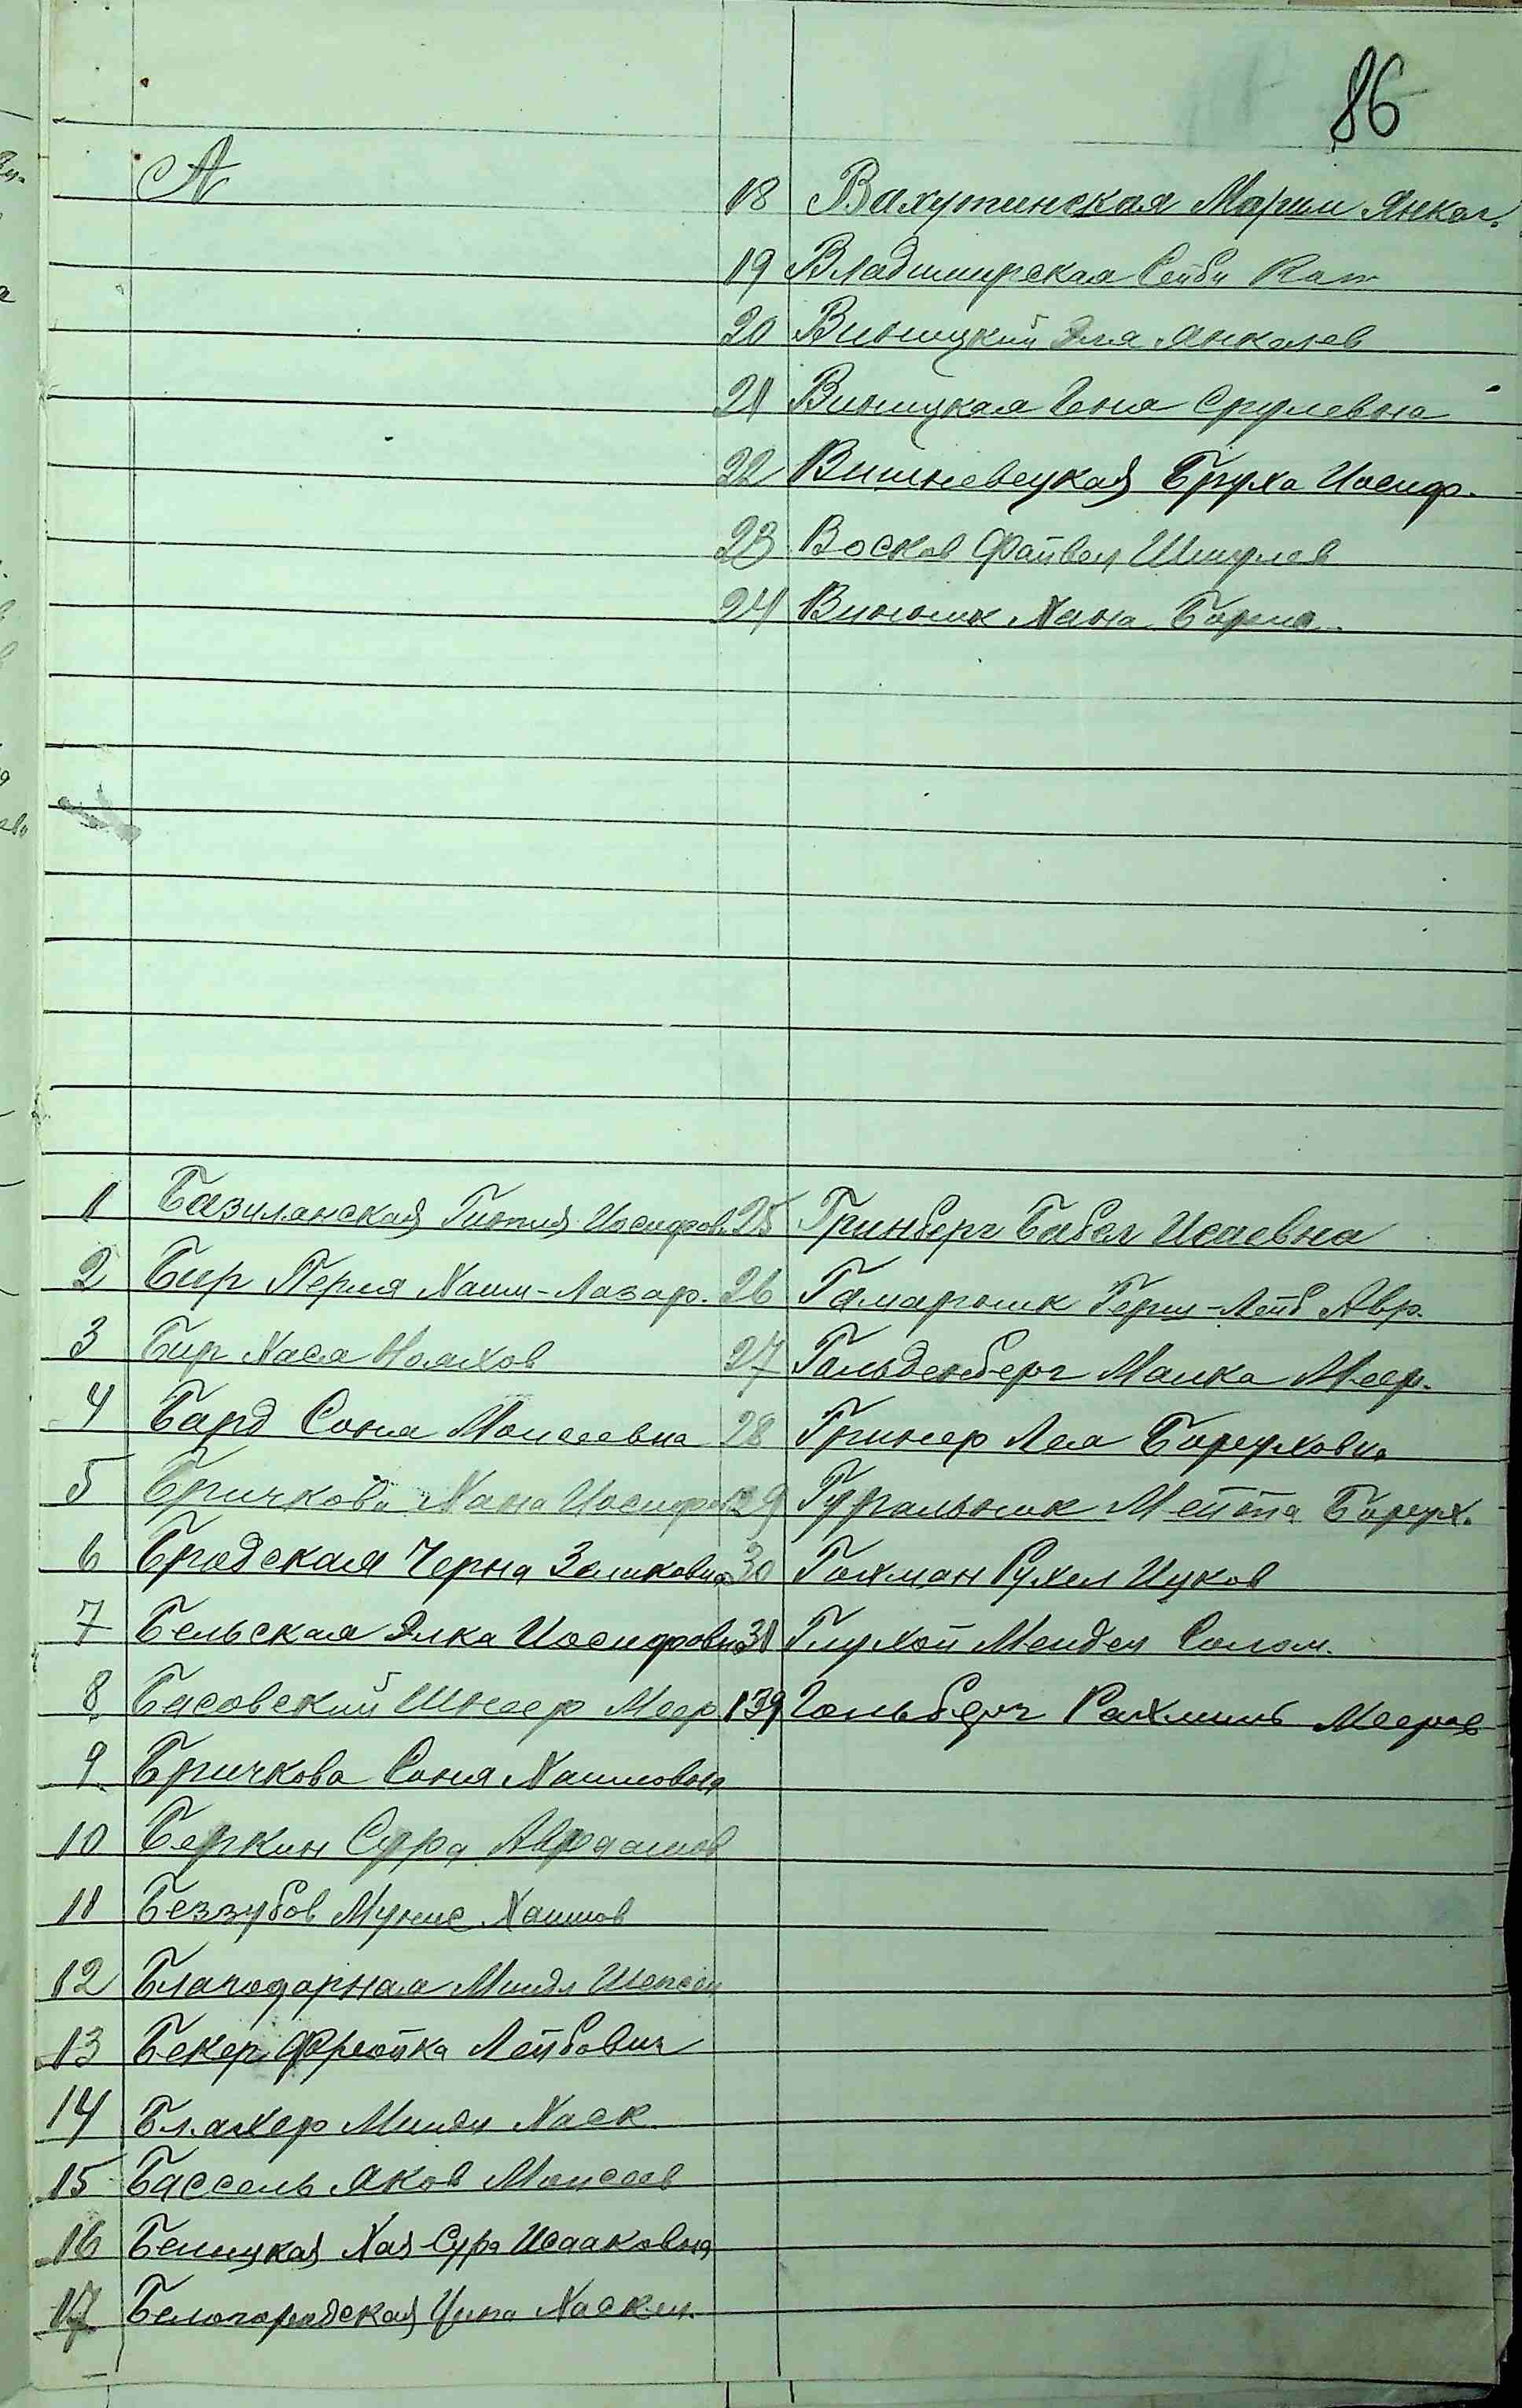 86
А
1 Базилянская Гитля Иосифов.
2 Бир Перля Хаим-Лазар.
3 Бир Хася Нояхов
4 Бард Соня Моисеевна
5 Бричкова Хана Иосифов
6 Бродская Черна Зеликовна
7 Бельская Элка Иосифовна
8 Басовский Шнеер Меер
9 Бричкова Соня Хаимовна
10 Беркин Сура Авраамов
11 Беззубов Мунис Хаимов
12 Благодарная Миндл
13 Бекер Фрейка Лейбович
14 Блахер Миндл Хаск
15 Бассель Яков Моисеев
16 Белицкая Хая-Сура Исааковна
17 Белогородская Ципа Хаскел.
18 Вахутинская Марим Янкел.
19 Владимирская Сейби
20 Виницкий Эля Янкелев
21 Виницкая Геня Срулевна
22 Вишневецкая Бруха Иосиф.
23 Восков Файвел Шмулев
24 Винник Хана
25 Гринберг Бабел Исаевна
26 Гамарник Герш-Лейб Авр.
27 Гольденберг Малка Меер.
28 Гринер Лея Боруховна
29 Гуральник Мейта Борух.
30 Гохман Рухел Ицков
31 Глухой Мендел Солом.
139 Гольберг Рахмиль Мееров